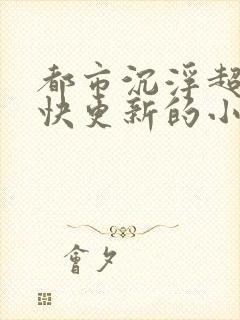 都市沉浮超
快更新的小
會夕